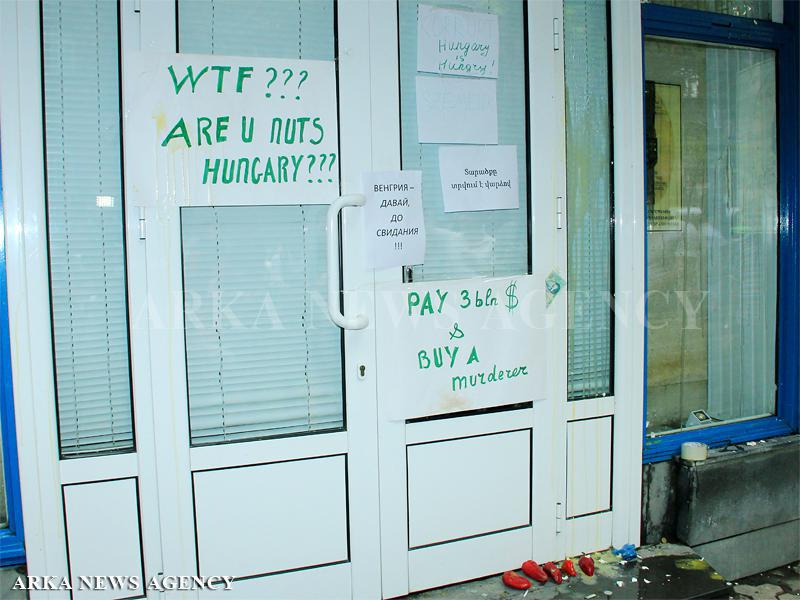 WTF???
ARE U NUTS
HUNGARY???
Hungary
is
Hungry!
Տարածքը
տրվում է վարձով
ВЕНГРИЯ –
ДАВАЙ,
ДО
СВИДАНИЯ
!!!
PAY 3 bln $
&
BUY A
murderer
ARKA NEWS AGENCY
ARKA NEWS AGENCY